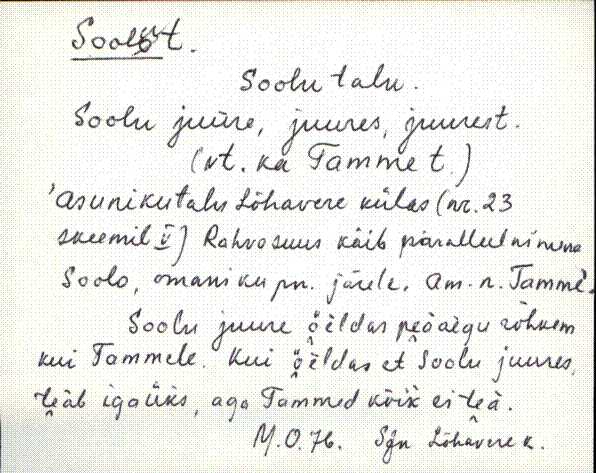 Soolu t.
Soolu talu.
Soolu juure, juures, juurest.
(vt. ka Tamme t.)
'asunikutalu Lõhavere külas (nr. 23
skeemil V) Rahvasuus käib paralleelnimena
Soolo, omaniku pn. järele. Am. n. Tamme.
Soolu juure öeldas peaaegu rohkem
kui Tammele. Kui öeldas et Soolu juures,
teab igaüks, aga Tammed kõik ei tea.
M.O.76. Sjn Lõhavere k.